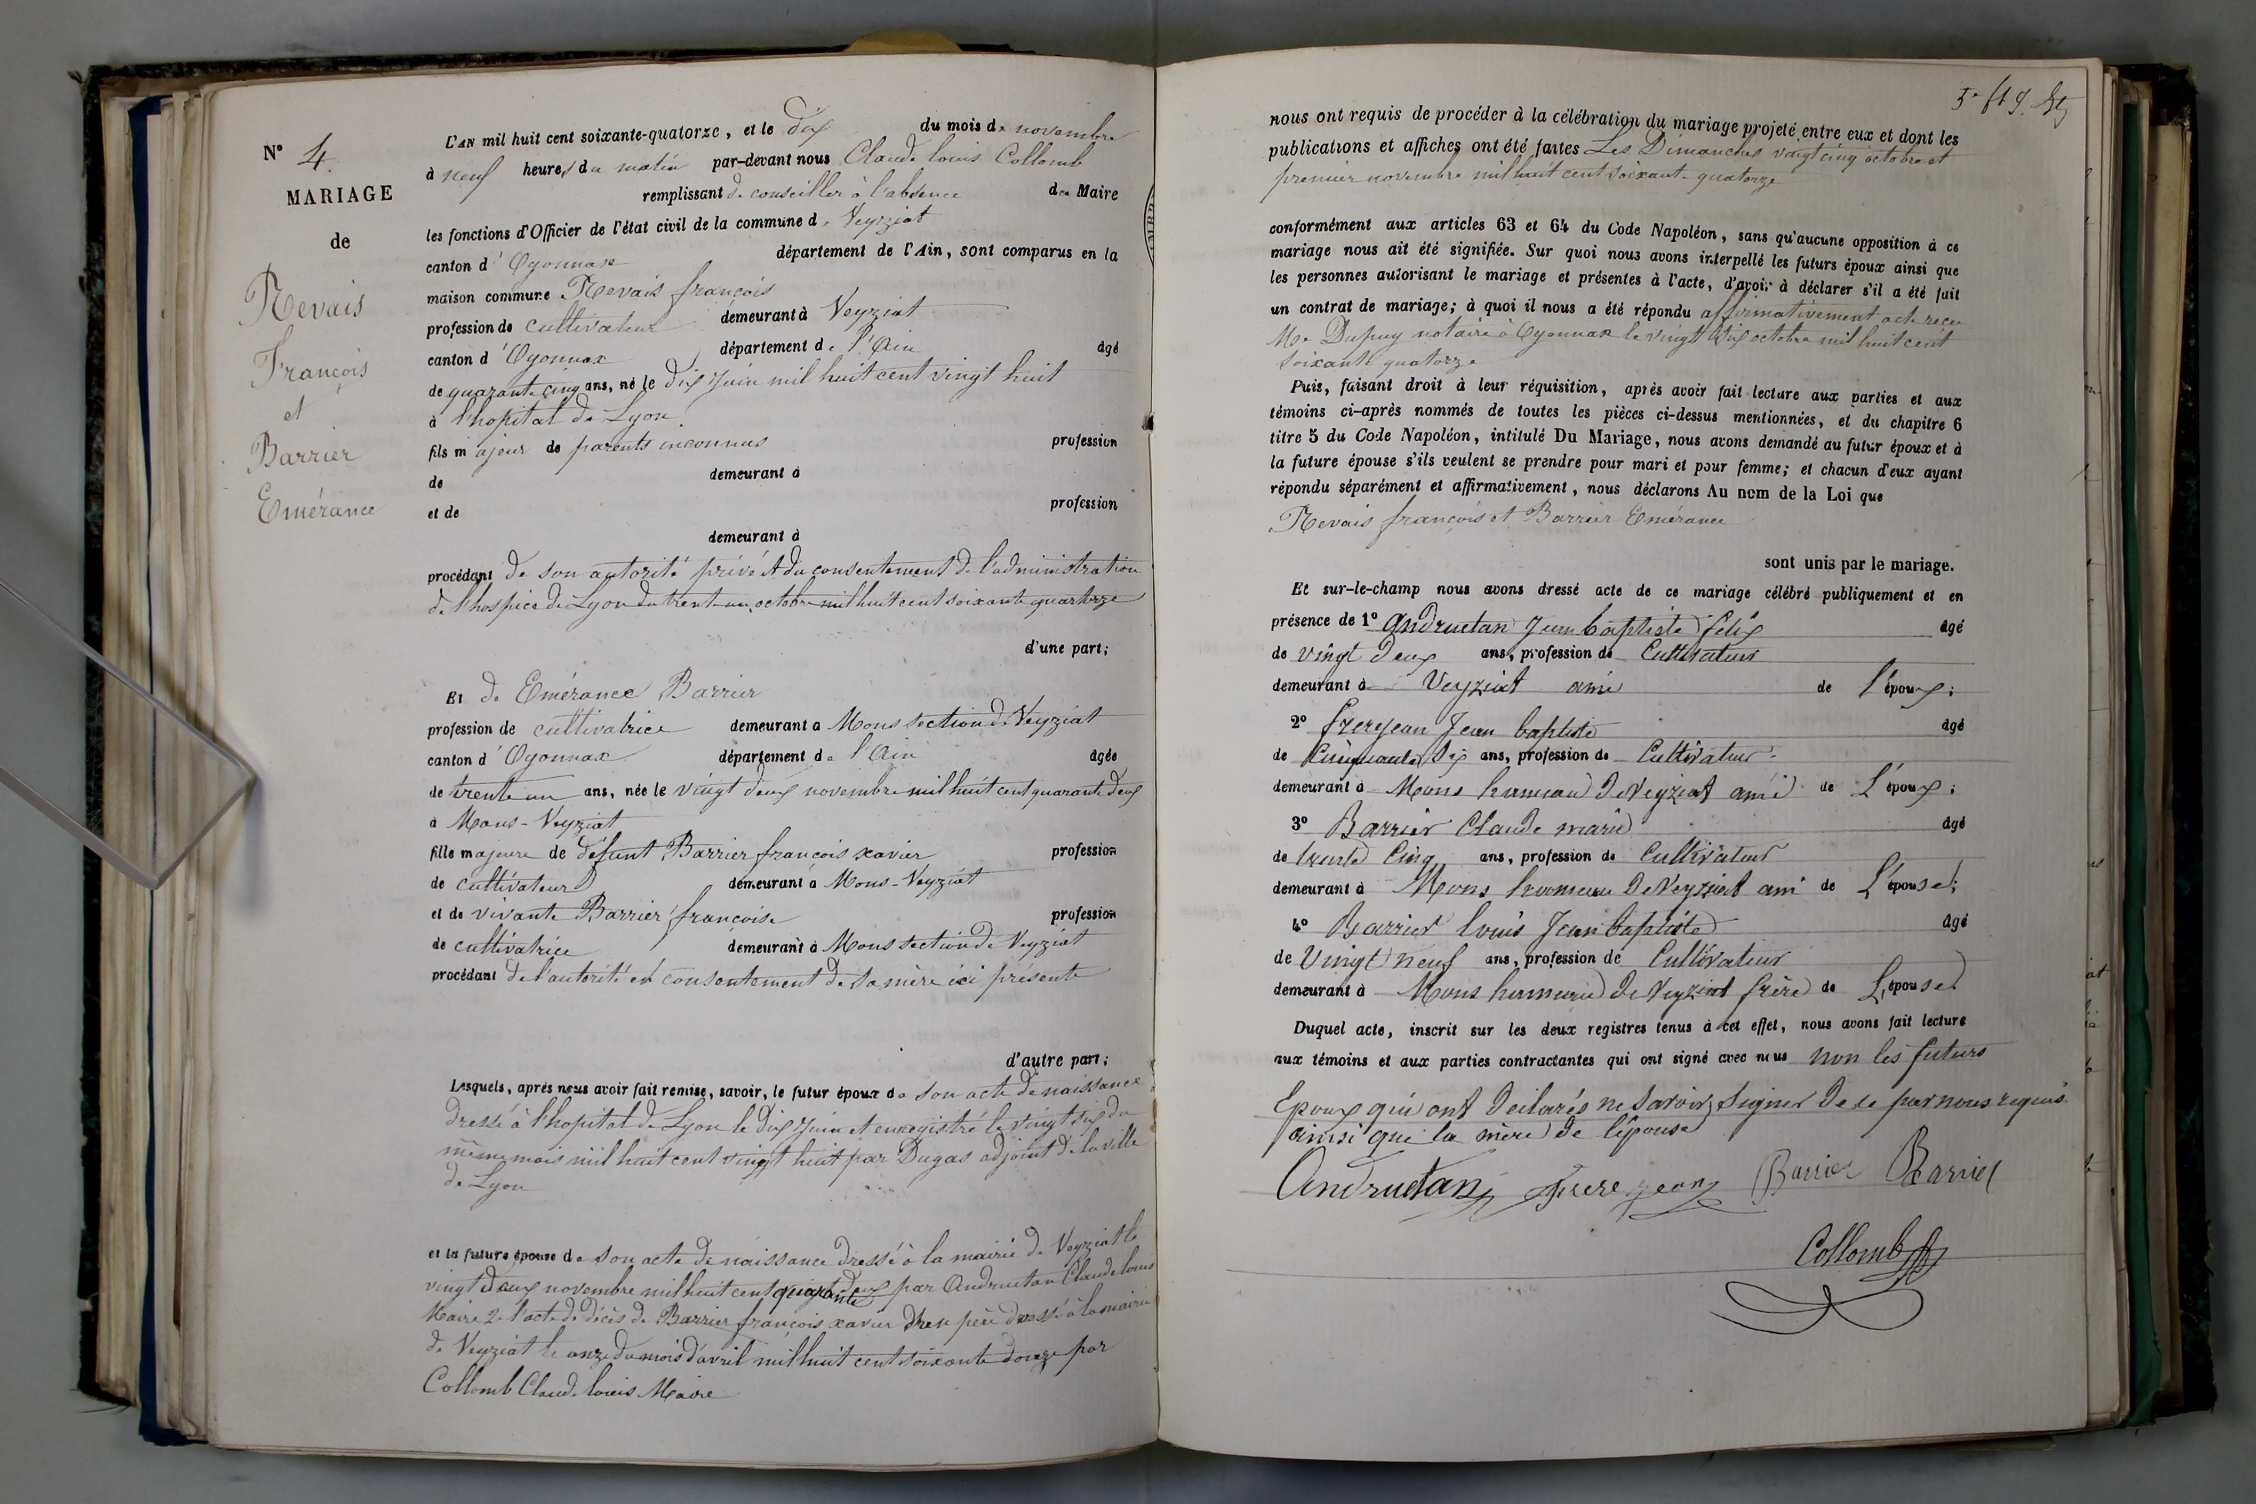 N° 4.
MARIAGE
de
Revais
François
et
Barrier
Emérance
L'AN mil huit cent soixante-quatorze, et le dix du mois de novembre
à neuf heures du matin par-devant nous Claude louis Collomb
remplissant de conseiller à l'absence du Maire
les fonctions d'Officier de l'état civil de la commune de Veyziat
canton d'Oyonnax département de l'Ain, sont comparus en la
maison commune Revais françois
profession de cultivateur demeurant à Veyziat
canton d'Oyonnax département de l'Ain âgé
de quarante cinq ans, né le dix Juin mil huit cent vingt huit
à l'hopital de Lyon
fils majeur de parents inconnus profession
de demeurant à
et de profession
demeurant à
procédant de son autorité privé et du consentement de l'administration
de l'hospice de Lyon du trente un octobre mil huit cent soixante quartorze
d'une part;
Et de Emérance Barrier
profession de cultivatrice demeurant à Mons section de Veyziat
canton d'Oyonnax département de l'Ain âgée
de trente un ans, née le vingt deux novembre mil huit cent quarante deux
à Mons-Veyziat
fille majeure de défunt Barrier françois xavier profession
de cultivateur demeurant à Mons-Veyziat
et de vivante Barrier françoise profession
de cultivatrice demeurant à Mons section de Veyziat
procédant de l'autorité et consentement de sa mère ici présente
d'autre part;
Lesquels, après nous avoir fait remise, savoir, le futur époux de son acte de naissance
dressé à l'hopital de Lyon le dix Juin et enregistré le vingt six du
même mois mil huit cent vingt huit par Dugas adjoint de la ville
de Lyon
et la future épouse de son acte de naissance dressé à la mairie de Veyziat le
vingt deux novembre mil huit cent quarante deux par Andruetan Claude louis
Maire 2° l'acte de décès de Barrier françois xavier son père dressé à la mairie
de Veyziat le onze du mois d'avril mil huit cent soixante douze par
Collomb Claude louis Maire
nous ont requis de procéder à la célébration du mariage projeté entre eux et dont les
publications et affiches ont été faites Les Dimanches vingt cinq octobre et
premier novembre mil huit cent soixante quatorze
conformément aux articles 63 et 64 du Code Napoléon, sans qu'aucune opposition à ce
mariage nous ait été signifiée. Sur quoi nous avons interpellé les futurs époux ainsi que
les personnes autorisant le mariage et présentes à l'acte, d'avoir à déclarer s'il a été fait
un contrat de mariage; à quoi il nous a été répondu affirmativement acte reçu
Me Dupuy notaire à Oyonnax le vingt six octobre mil huit cent
soixante quatorze
Puis, faisant droit à leur réquisition, après avoir fait lecture aux parties et aux
témoins ci-après nommés de toutes les pièces ci-dessus mentionnées, et du chapitre 6
titre 5 du Code Napoléon, intitulé Du Mariage, nous avons demandé au futur époux et à
la future épouse s'ils veulent se prendre pour mari et pour femme; et chacun d'eux ayant
répondu séparément et affirmativement, nous déclarons Au nom de la Loi que
Revais françois et Barrier Emérance
sont unis par le mariage.
Et sur-le-champ nous avons dressé acte de ce mariage célébré publiquement et en
présence de 1° Andruetan Jean baptiste félix âgé
de vingt deux ans, profession de Cultivateur
demeurant à Veyziat ami de l'époux;
2° frerejean Jean baptiste âgé
de Cinquante six ans, profession de Cultivateur
demeurant à Mons hameau de Veyziat ami de L'époux;
3° Barrier Claude marie âgé
de trente Cinq ans, profession de Cultivateur
demeurant à Mons hameau De Veyziat ami de L'épouse;
4° Barrier louis Jean baptiste âgé
de Vingt neuf ans, profession de Cultivateur
demeurant à Mons hameau De Veyziat frère de L'épouse
Duquel acte, inscrit sur les deux registres tenus à cet effet, nous avons fait lecture
aux témoins et aux parties contractantes qui ont signé avec nous non les futurs
Epoux qui ont déclarés ne savoir signer de ce par nous requis
ainsi que la mère de l'épouse
Andruetan frere jean Barrier Barrier
Collomb